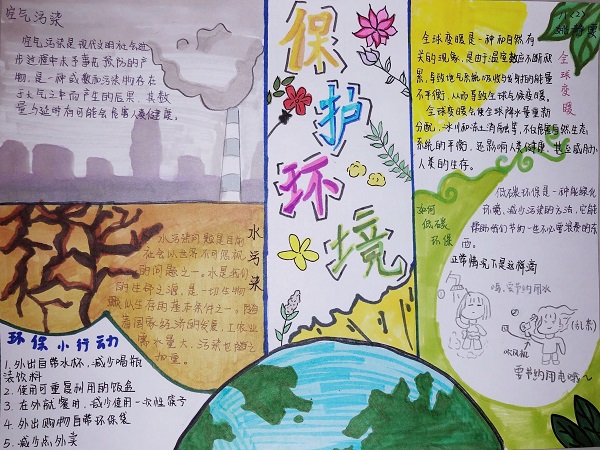 空气污染
空气污染是现代文明社会进
步过程中未予事先预防的产
物,是一种或数种污染物存在
于大气之中而产生的后果,其数
量与延时有可能会危害人类健康。
水污染
水污染问题是目前
社会以世界不可忽视
的问题之一。水是我们
的生命之源,是一切生物
赖以生存的基本条件之一,随
着国家经济的发展,工农业
需水量大,污染也随之
加重。
环保小行动
1. 外出自带水杯,减少喝瓶
装饮料
2. 使用可重复利用的饭盒
3. 在外就餐时,减少使用一次性筷子
4. 外出购物自带环保袋
5. 减少点外卖
保护环境
全球变暖
全球变暖是一种和自然有
关的现象,是由于温室效应不断积
累,导致地气系统吸收与发射的能量
不平衡,从而导致全球气候变暖。
全球变暖会使全球降水量重新
分配,冰川和冻土消融等,不仅危害自然生态
系统的平衡,还影响人类健康,甚至威胁
人类的生存。
如何
低碳
环保
低碳环保是一种能绿化
环境,减少污染的方法,它能
帮助我们节约一些不必要浪费的东
西。
正常情况下是这样滴
嗨,要节约用水
吹风机
(乱素)
要节约用电哦~